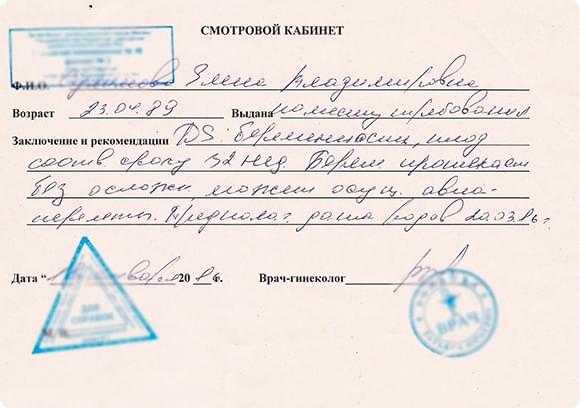 СМОТРОВОЙ КАБИНЕТ
Ф.И.О. Елена Владимировна
Возраст 23.04.89 Выдана по месту требования
Заключение и рекомендации DS: Беременность, плод
соотв. сроку 32 нед. Берем. протекает
без осложн, может осущ. авиа-
перелеты. Предполаг. дата родов 20.03.16г.
Дата “ января 2016г. Врач-гинеколог
ДЛЯ
СПРАВОК
М.П.
ВРАЧ